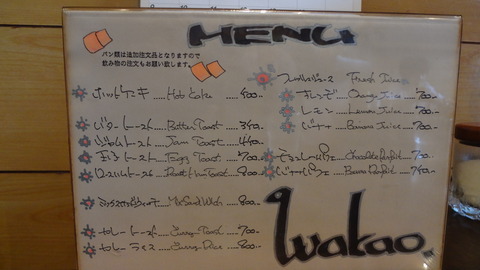 MENU
パン類は追加注文品となりますので
飲み物の注文もお願い致します。
ホットケーキ.....Hot Cake.....400
バタートースト.....Butter Toast.....340
ジャムトースト.....Jam Toast.....440
玉子トースト.....Egg Toast.....700
ロースハムトースト.....Toast.....800
ミックスサンドウィッチ.....Mix Sand Wich.....800
カレートースト.....Curry Toast.....700
カレーライス.....Curry Rice.....800
フレッシュジュース Fresh Juice
オレンジ.....Orange Juice.....700
レモン.....Lemon Juice.....700
バナナ.....Banana Juice.....700
チョコレートパフェ.....Chocolate Parfait.....750
バナナパフェ.....Banana Parfait.....750
Wakao